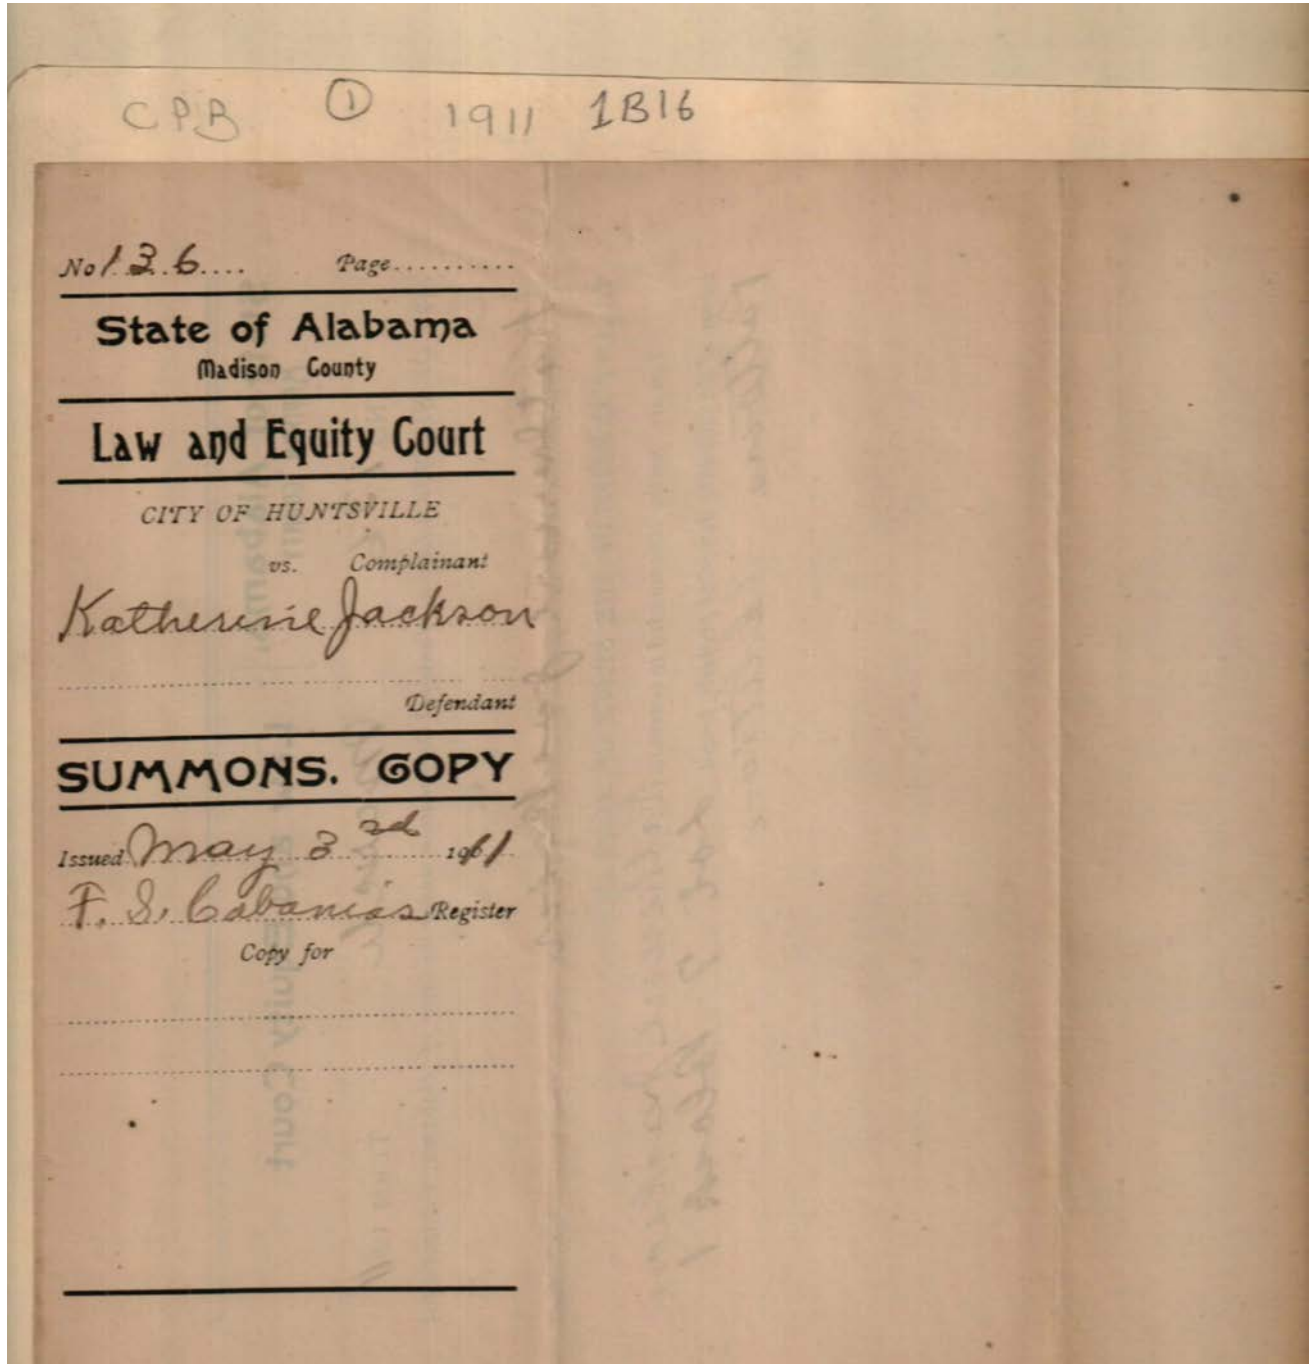 CPB ① 1911 1B16
No 136.... Page..........
State of Alabama
Madison County
Law and Equity Court
CITY OF HUNTSVILLE
vs. Complainant
Katherine Jackson
Defendant
SUMMONS. COPY
Issued May 3rd 1911
F. S. Cabaniss Register
Copy for